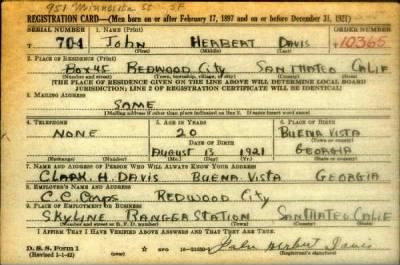 951 Minnesota St S.F.
REGISTRATION CARD—(Men born on or after February 17, 1897 and on or before December 31, 1921)
SERIAL NUMBER 1. NAME (Print) ORDER NUMBER
T 704 John Herbert Davis 10365
(First) (Middle) (Last)
2. PLACE OF RESIDENCE (Print)
Box 45 Redwood City San Mateo Calif
(Number and street) (Town, township, village, or city) (County) (State)
[THE PLACE OF RESIDENCE GIVEN ON THE LINE ABOVE WILL DETERMINE LOCAL BOARD
JURISDICTION; LINE 2 OF REGISTRATION CERTIFICATE WILL BE IDENTICAL]
3. MAILING ADDRESS
Same
[Mailing address if other than place indicated on line 2. If same insert word same]
4. TELEPHONE 5. AGE IN YEARS 6. PLACE OF BIRTH
None 20 Buena Vista
DATE OF BIRTH (Town or county)
August 13 1921 Georgia
(Exchange) (Number) (Mo.) (Day) (Yr.) (State or country)
7. NAME AND ADDRESS OF PERSON WHO WILL ALWAYS KNOW YOUR ADDRESS
Clark. H. Davis Buena Vista Georgia
8. EMPLOYER'S NAME AND ADDRESS
C.C. Corps Redwood City
9. PLACE OF EMPLOYMENT OR BUSINESS
Skyline Rangga Station San Mateo Calif
(Number and street or R. F. D. number) (Town) (County) (State)
I AFFIRM THAT I HAVE VERIFIED ABOVE ANSWERS AND THAT THEY ARE TRUE.
D. S. S. Form 1 GPO John Herbert Davis
(Revised 1-1-42) (Registrant's signature)